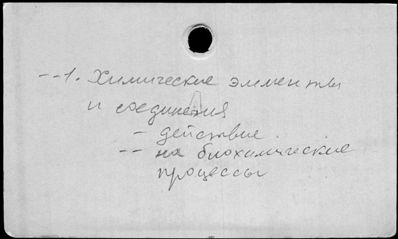 --1. Химические элементы
и соединения
- действие
-- на биохимические
процессы